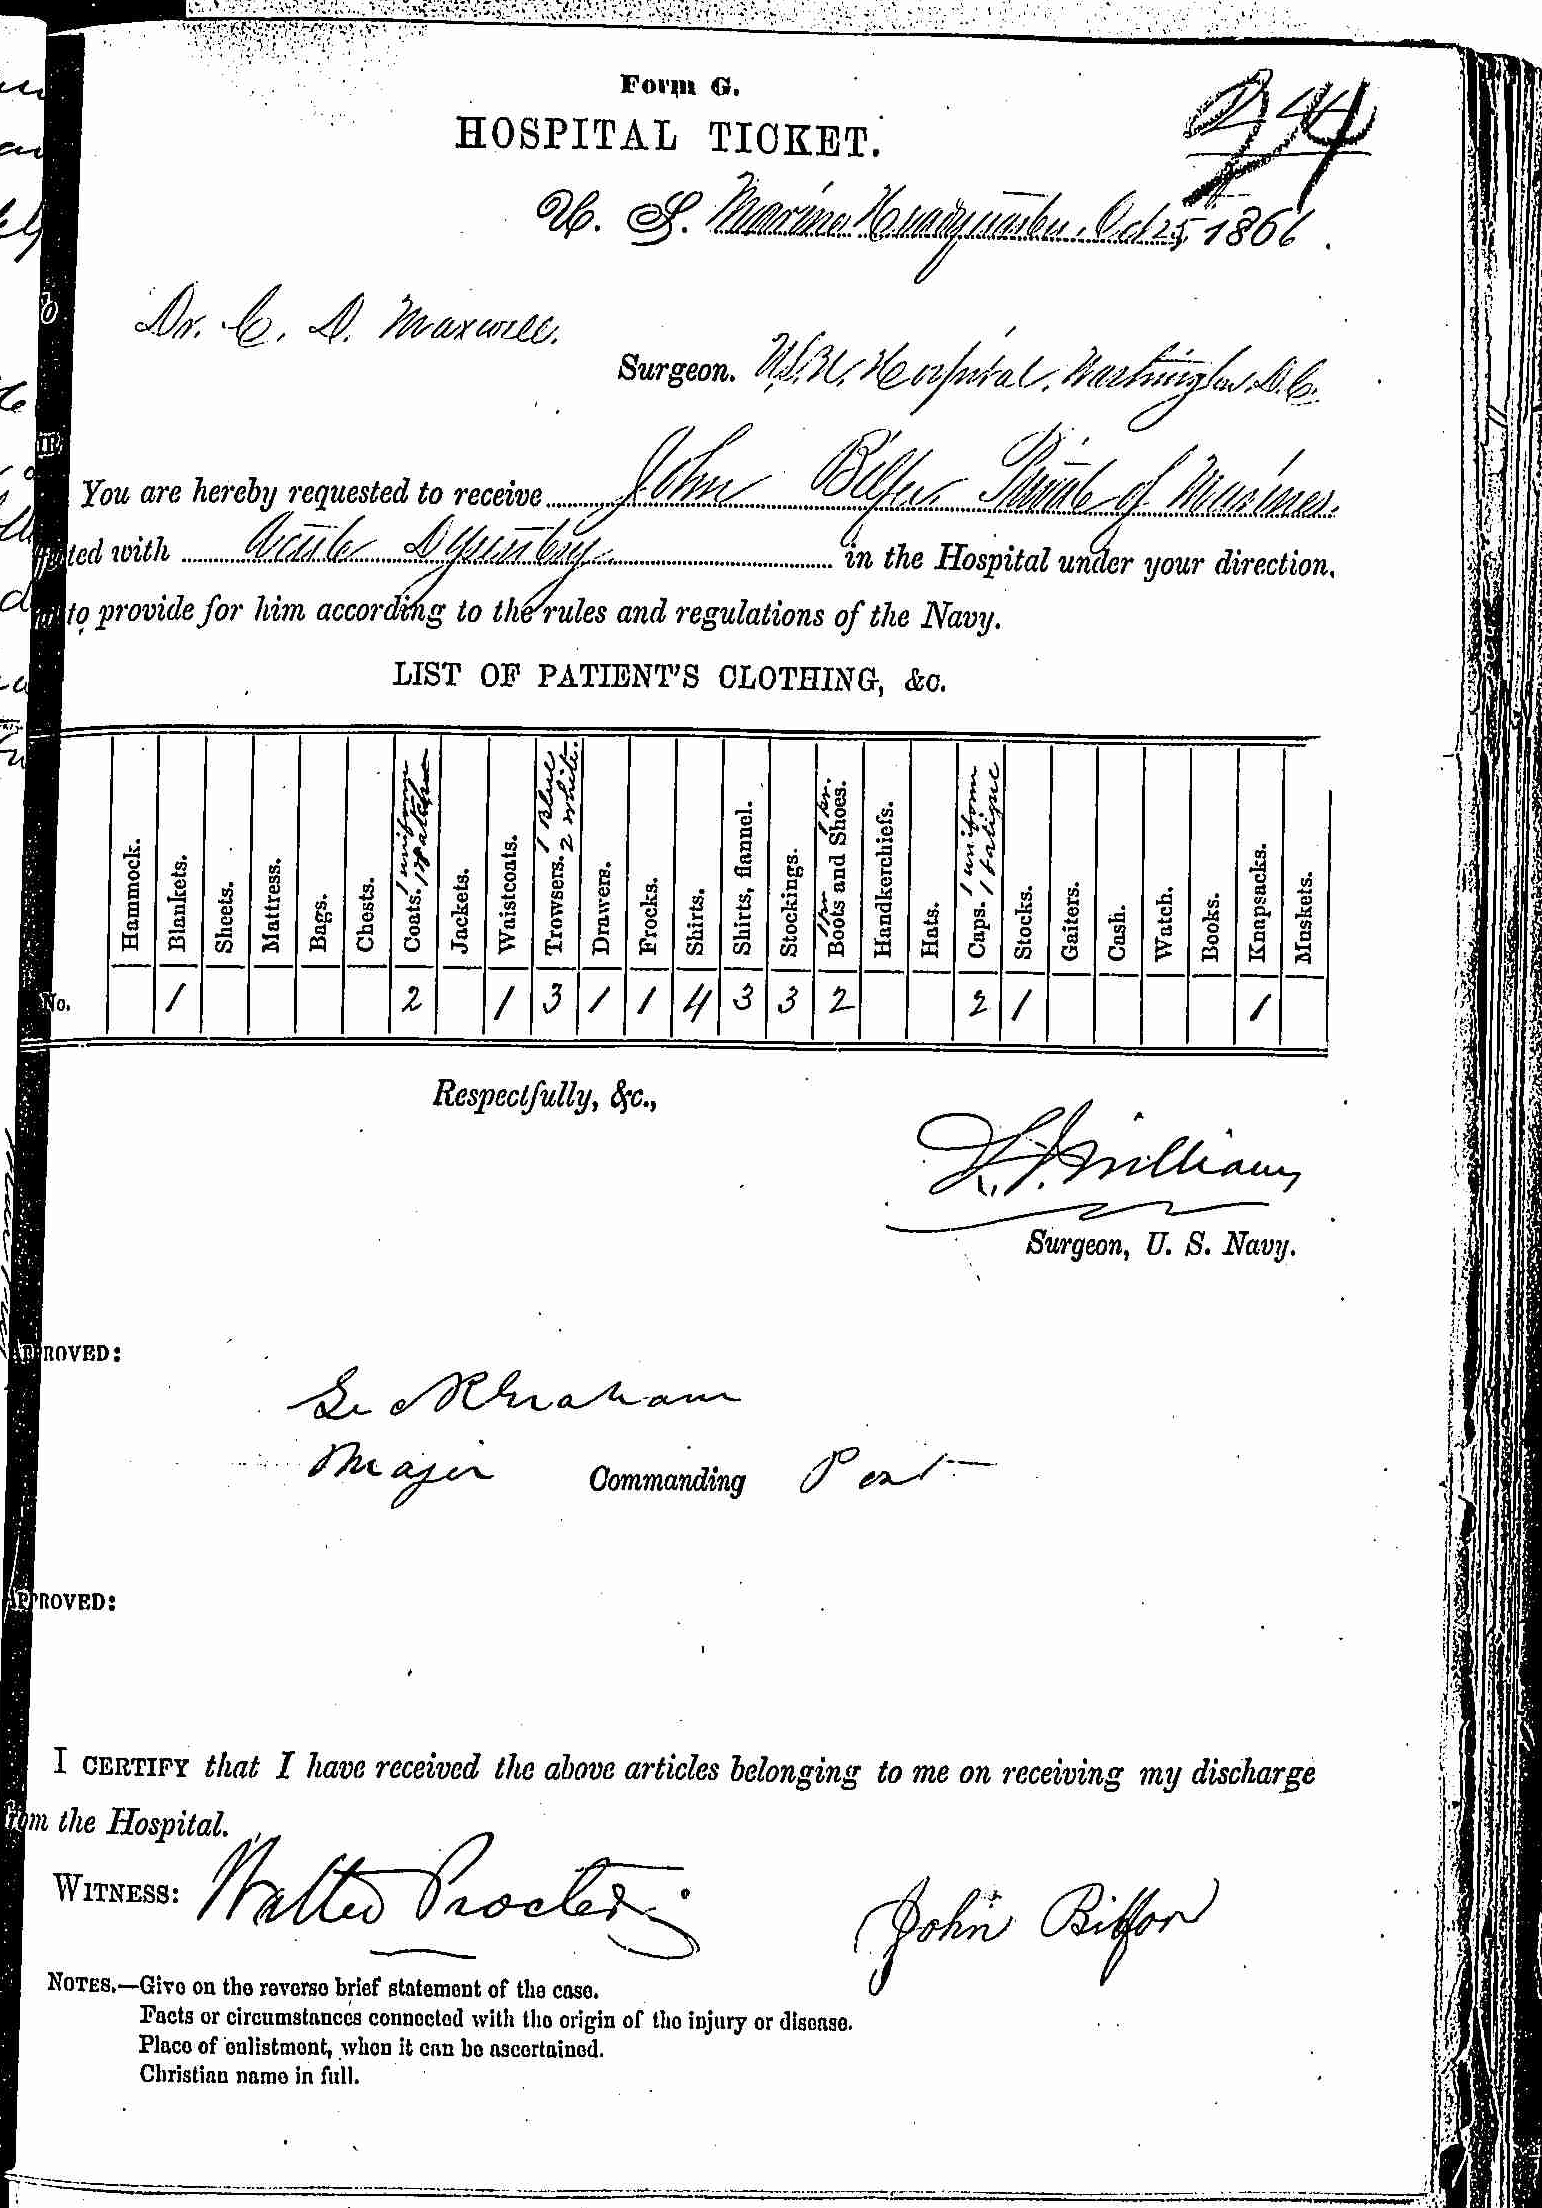 Form G.
HOSPITAL TICKET.
244
U. S. Marine Headquarters, Oct 25, 1866.
Dr. C. D. Maxwell.
Surgeon. U.S.N. Hospital, Washington, D.C.
You are hereby requested to receive John Private of Marines.
ted with Acute Dysentery in the Hospital under your direction,
to provide for him according to the rules and regulations of the Navy.
LIST OF PATIENT'S CLOTHING, &c.
Hammock.
Blankets.
Sheets.
Mattress.
Bags.
Chests.
Coats. 1 uniform
Jackets.
Waistcoats.
Trowsers. 1 Blue 2 white.
Drawers.
Frocks.
Shirts.
Shirts, flannel.
Stockings.
Boots and Shoes. 1 pr. 1 pr.
Handkerchiefs.
Hats.
Caps. 1 uniform 1 fatigue
Stocks.
Gaiters.
Cash.
Watch.
Books.
Knapsacks.
Muskets.
No. 1 2 1 3 1 1 4 3 3 2 2 1 1
Respectfully, &c.,
Williams
Surgeon, U. S. Navy.
APPROVED:
Geo R Graham
Major Commanding Post
APPROVED:
I CERTIFY that I have received the above articles belonging to me on receiving my discharge
from the Hospital.
WITNESS: Walter Procter John
NOTES.—Give on the reverse brief statement of the case.
Facts or circumstances connected with the origin of the injury or disease.
Place of enlistment, when it can be ascertained.
Christian name in full.